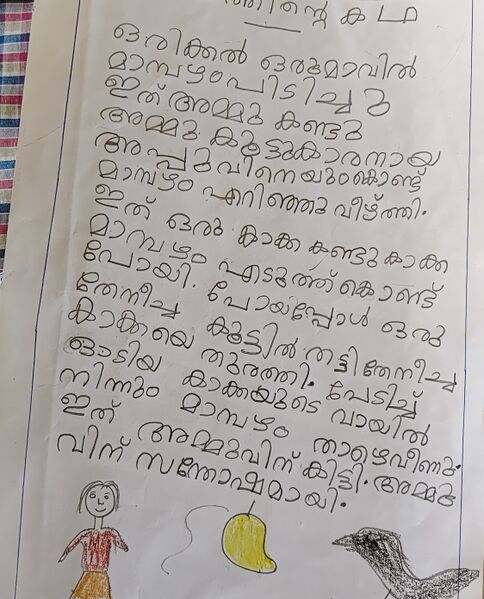 കഥ
ഒരിക്കൽ ഒരുമാവിൽ
മാമ്പഴംപിടിച്ചു
ഇത് അമ്മു കണ്ടു
അമ്മു കൂട്ടുകാരനായ
അപ്പുവിനെയുംകൊണ്ട്
മാമ്പഴം എറിഞ്ഞു വീഴ്ത്തി.
ഇത് ഒരു കാക്ക കണ്ടു കാക്ക
മാമ്പഴം എടുത്ത്കൊണ്ട്
പോയി. പോയപ്പോൾ ഒരു
തേനീച്ച കൂട്ടിൽ തട്ടി തേനീച്ച
കാക്കയെ തുരത്തി. പേടിച്ച്
ഓടിയ കാക്കയുടെ വായിൽ
നിന്നും മാമ്പഴം താഴെവീണു.
ഇത് അമ്മുവിന് കിട്ടി. അമ്മു
വിന് സന്തോഷമായി.